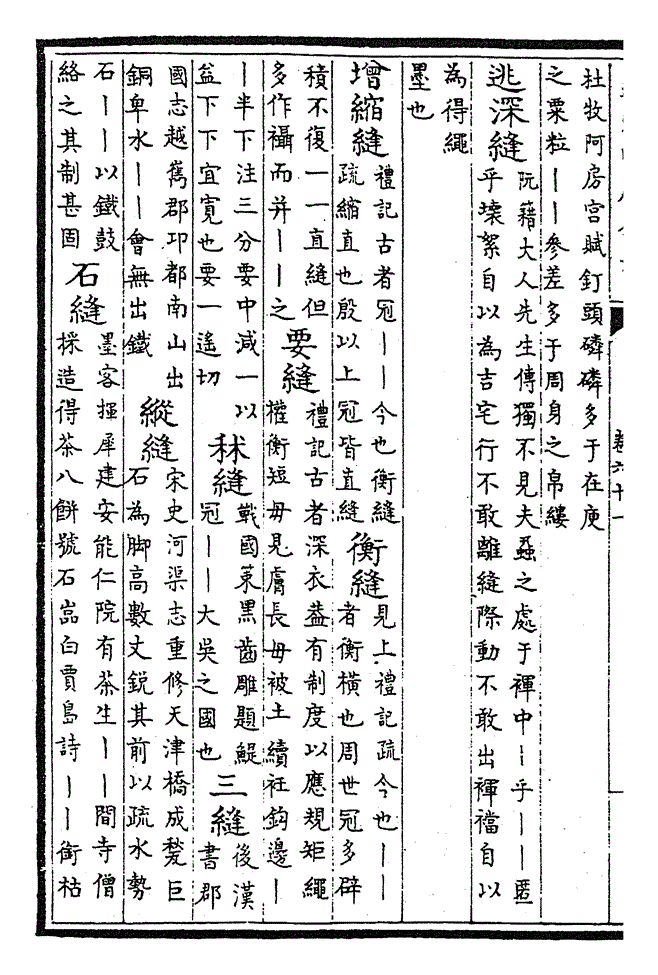 卷六十一
杜牧阿房宮賦釘頭磷磷多于在庾
之粟粒丨丨參差多于周身之帛縷
逃深縫
阮籍大人先生傳獨不見夫蝨之處于褌中丨乎丨丨匿
乎壊絮自以為吉宅行不敢離縫際動不敢出褌襠自以
為得繩
墨也
增縮縫
禮記古者冠丨丨今也衡縫
疏縮直也殷以上冠皆直縫
衡縫
見上禮記疏今也丨丨
者衡橫也周世冠多辟
積不復一一直縫但
多作襵而并丨丨之
要縫
禮記古者深衣葢有制度以應規矩繩
權衡短毋見膚長毋被土續衽鈎邊丨
丨半下注三分要中減一以
益下下宜寬也要一遙切
秫縫
戰國䇿黑齒雕題鯷
冠丨丨大吳之國也
三縫
後漢
書郡
國志越嶲郡邛都南山出
銅卑水丨丨會無出鐵
縱縫
宋史河渠志重修天津橋成甃巨
石為脚高數丈銳其前以疏水勢
石丨丨以鐵鼓
絡之其制甚固
石縫
墨客揮犀建安能仁院有茶生丨丨間寺僧
採造得茶八餅號石嵓白賈島詩丨丨銜枯